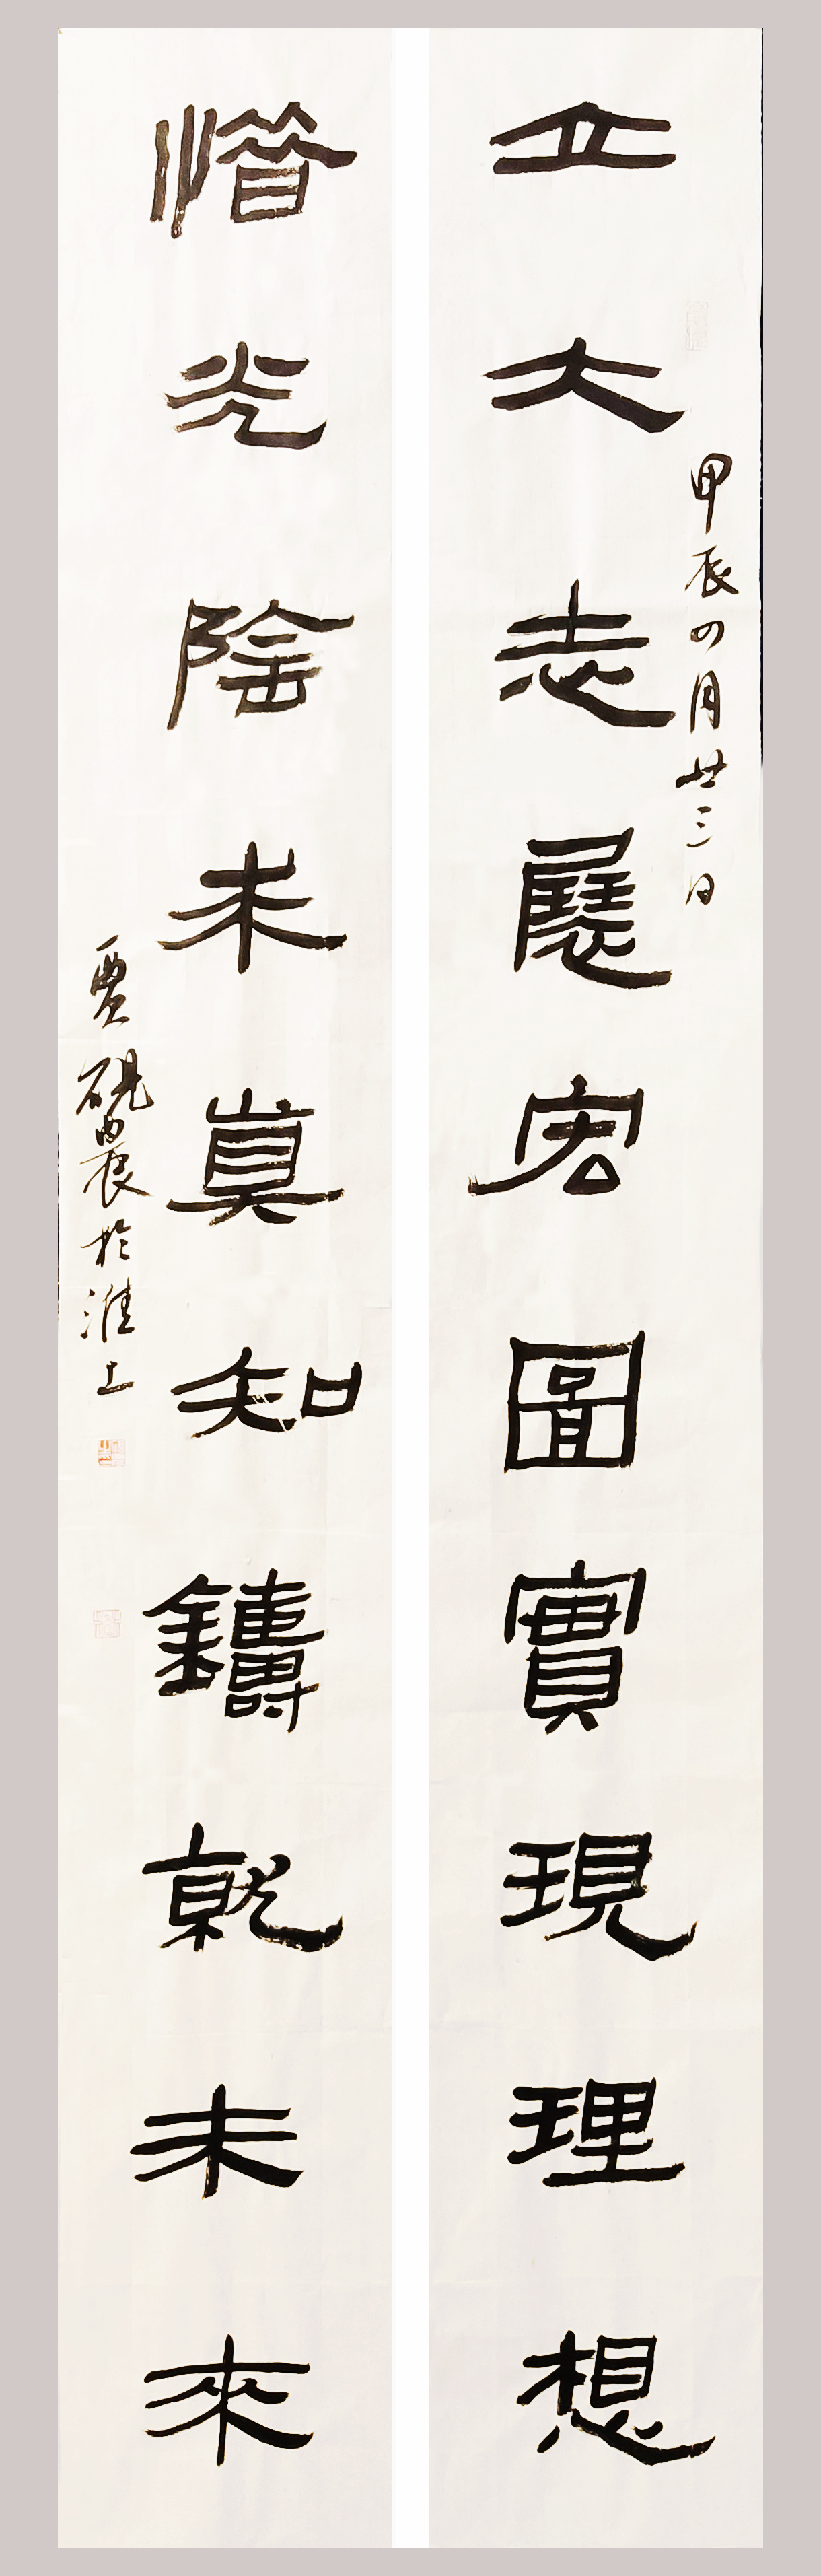 立大志展宏圖實現理想
甲辰四月廿三日
惜光陰求真知鑄就未來
賈硯農於淮上